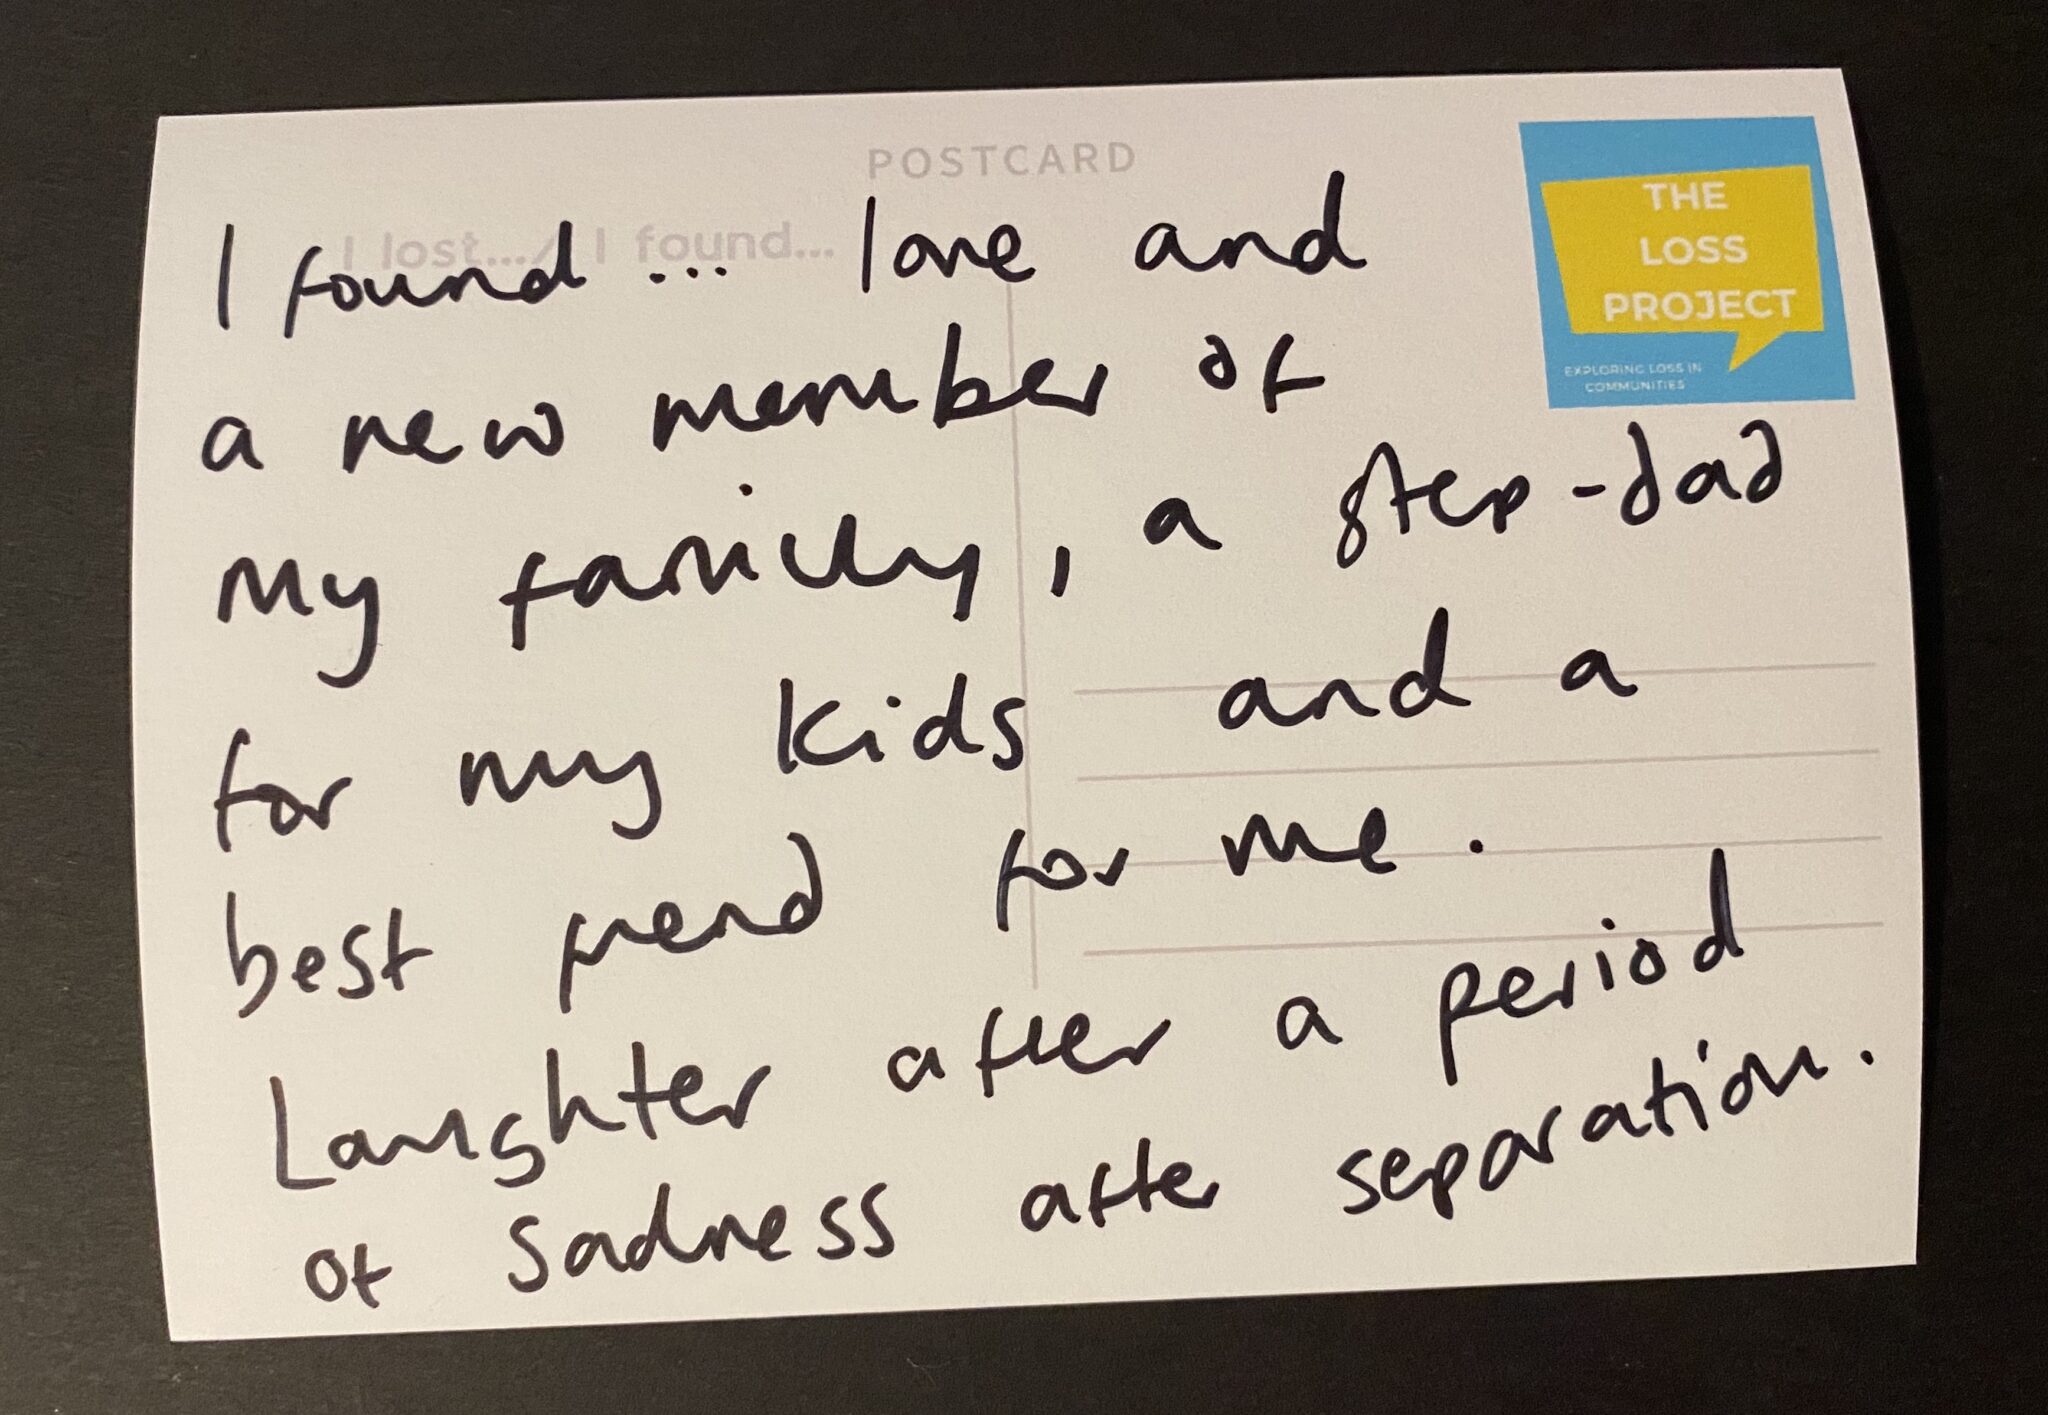 POSTCARD
I lost.../ I found...
THE
LOSS
PROJECT
EXPLORING LOSS IN
COMMUNITIES
I found... love and
a new member of
my family, a step-dad
for my kids and a
best friend for me.
Laughter after a period
of sadness after separation.